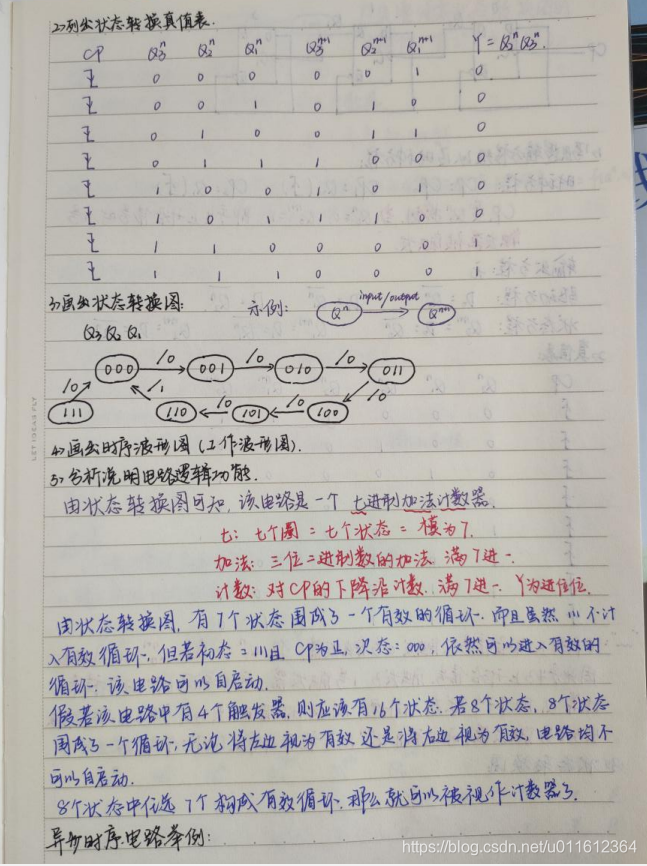 2>列出状态转换真值表.
CP Q₃ⁿ Q₂ⁿ Q₁ⁿ Q₃ⁿ⁺¹ Q₂ⁿ⁺¹ Q₁ⁿ⁺¹ Y = Q₃ⁿQ₂ⁿ.
0 0 0 0 0 1 0
0 0 1 0 1 0 0
0 1 0 0 1 1 0
0 1 1 1 0 0 0
1 0 0 1 0 1 0
1 0 1 1 1 0 0
1 1 0 0 0 0 1
1 1 1 0 0 0 1
3>画出状态转换图:
示例: Qⁿ input/output Qⁿ⁺¹
Q₃ Q₂ Q₁
000 /0 001 /0 010 /0 011
/0 /1 /0
111 110 /0 101 /0 100
4>画出时序波形图(工作波形图).
5>分析说明电路逻辑功能.
由状态转换图可知,该电路是一个七进制加法计数器.
七: 七个圈 = 七个状态 = 模为7.
加法: 三位二进制数的加法 满7进一.
计数: 对CP的下降沿计数. 满7进一. Y为进位位.
由状态转换图, 有7个状态围成了一个有效的循环. 而且虽然111不计
入有效循环, 但若初态=111且 CP为正, 次态:000, 依然可以进入有效的
循环. 该电路可以自启动.
假若该电路中有4个触发器, 则应该有16个状态. 若8个状态, 8个状态
围成了一个循环, 无论将左边视为有效 还是将右边视为有效, 电路均不
可以自启动.
8个状态中任选7个构成有效循环. 那么就可以被视作计数器了.
异步时序电路举例:
LET IDEAS FLY
https://blog.csdn.net/u011612364